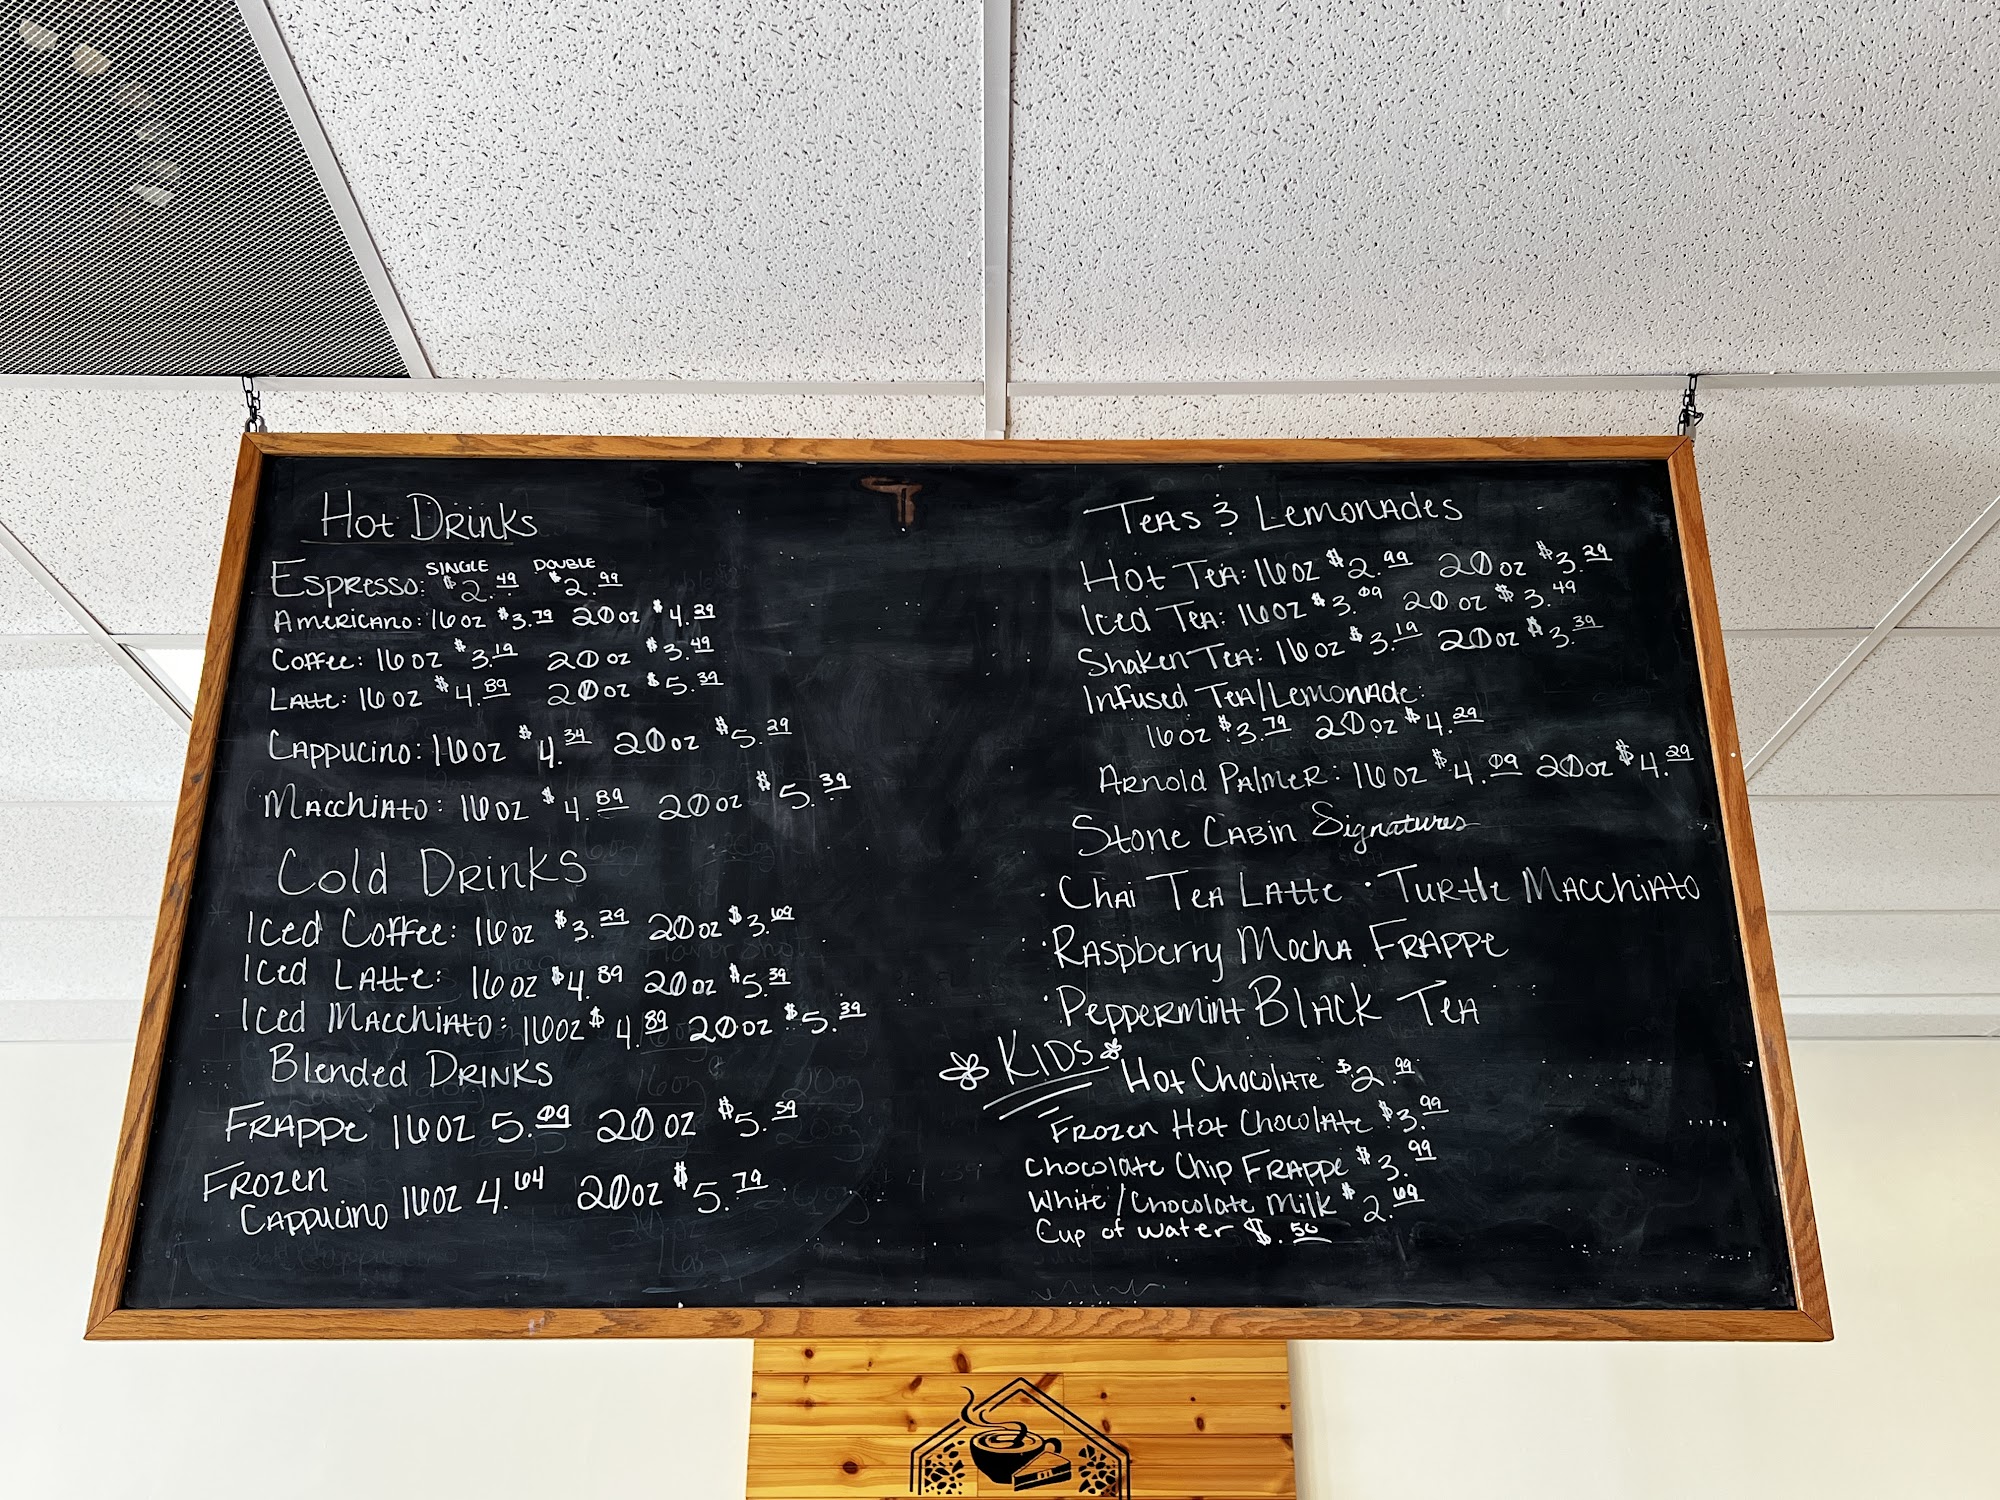 Hot Drinks
SINGLE DOUBLE
Espresso: $2.49 $2.99
Americano: 16oz $3.79 20oz $4.29
Coffee: 16oz $3.19 20oz $3.49
Latte: 16oz $4.89 20oz $5.39
Cappucino: 16oz $4.34 20oz $5.29
Macchiato: 16oz $4.89 20oz $5.39
Cold Drinks
Iced Coffee: 16oz $3.29 20oz $3.69
Iced Latte: 16oz $4.89 20oz $5.39
Iced Macchiato: 16oz $4.89 20oz $5.39
Blended Drinks
Frappe 16oz 5.09 20oz $5.59
Frozen
Cappucino 16oz 4.64 20oz $5.79
Teas & Lemonades
Hot Tea: 16oz $2.99 20oz $3.29
Iced Tea: 16oz $3.09 20oz $3.49
Shaken Tea: 16oz $3.19 20oz $3.39
Infused Tea/Lemonade:
16oz $3.79 20oz $4.29
Arnold Palmer: 16oz $4.09 20oz $4.29
Stone Cabin Signatures
· Chai Tea Latte · Turtle Macchiato
· Raspberry Mocha Frappe
· Peppermint Black Tea
Kids
Hot Chocolate $2.99
Frozen Hot Chocolate $3.99
Chocolate Chip Frappe $3.99
White/Chocolate Milk $2.69
Cup of water $.50